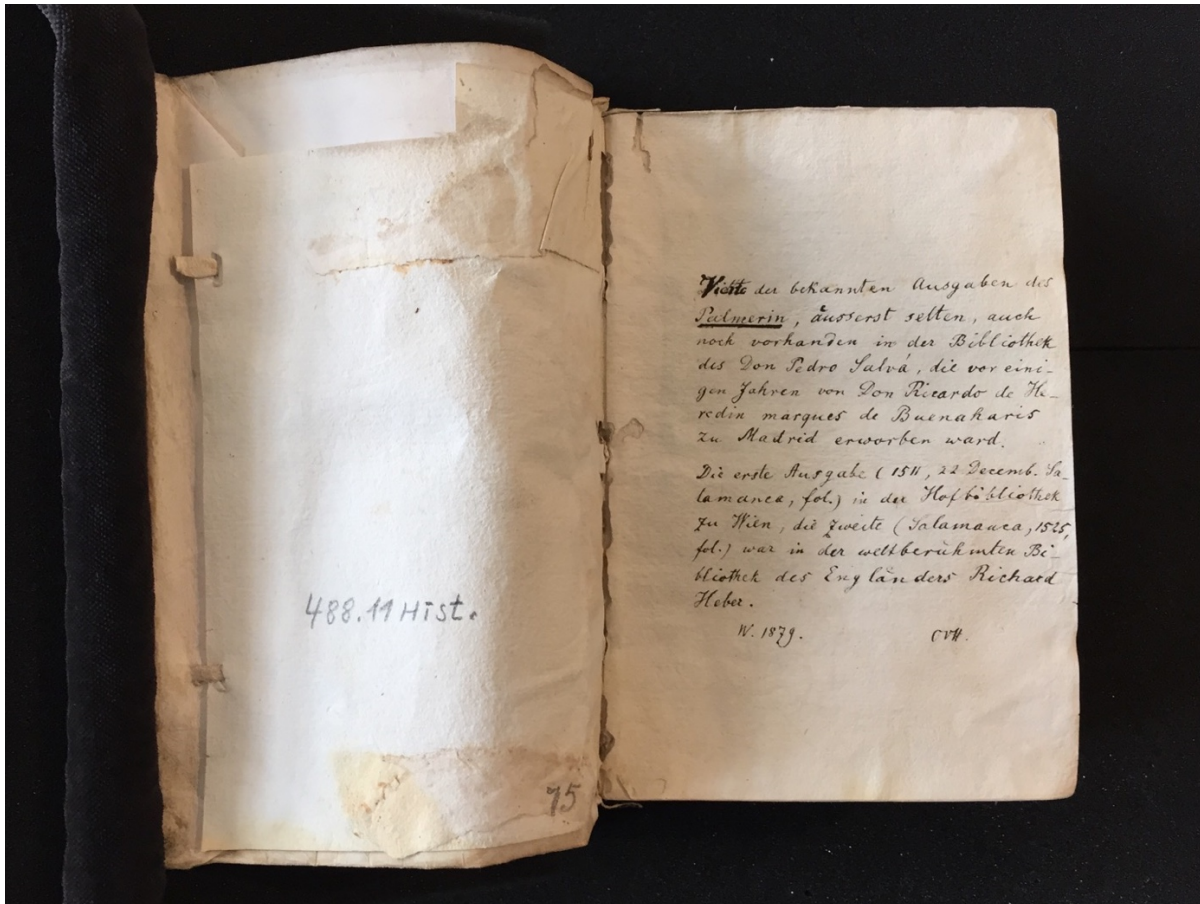 488.11 Hist.
75
Vierte der bekannten Ausgaben des
Palmerin, äusserst selten, auch
noch vorhanden in der Bibliothek
des Don Pedro Salvá, die vor eini-
gen Jahren von Don Ricardo de He-
redia marques de Buenaharis
zu Madrid erworben ward.
Die erste Ausgabe (1511, 22 Decemb. Sa-
lamanca, fol.) in der Hofbibliothek
zu Wien, die zweite (Salamanca, 1525,
fol.) war in der weltberühmten Bi-
bliothek des Engländers Richard
Heber.
W. 1879. CvH.